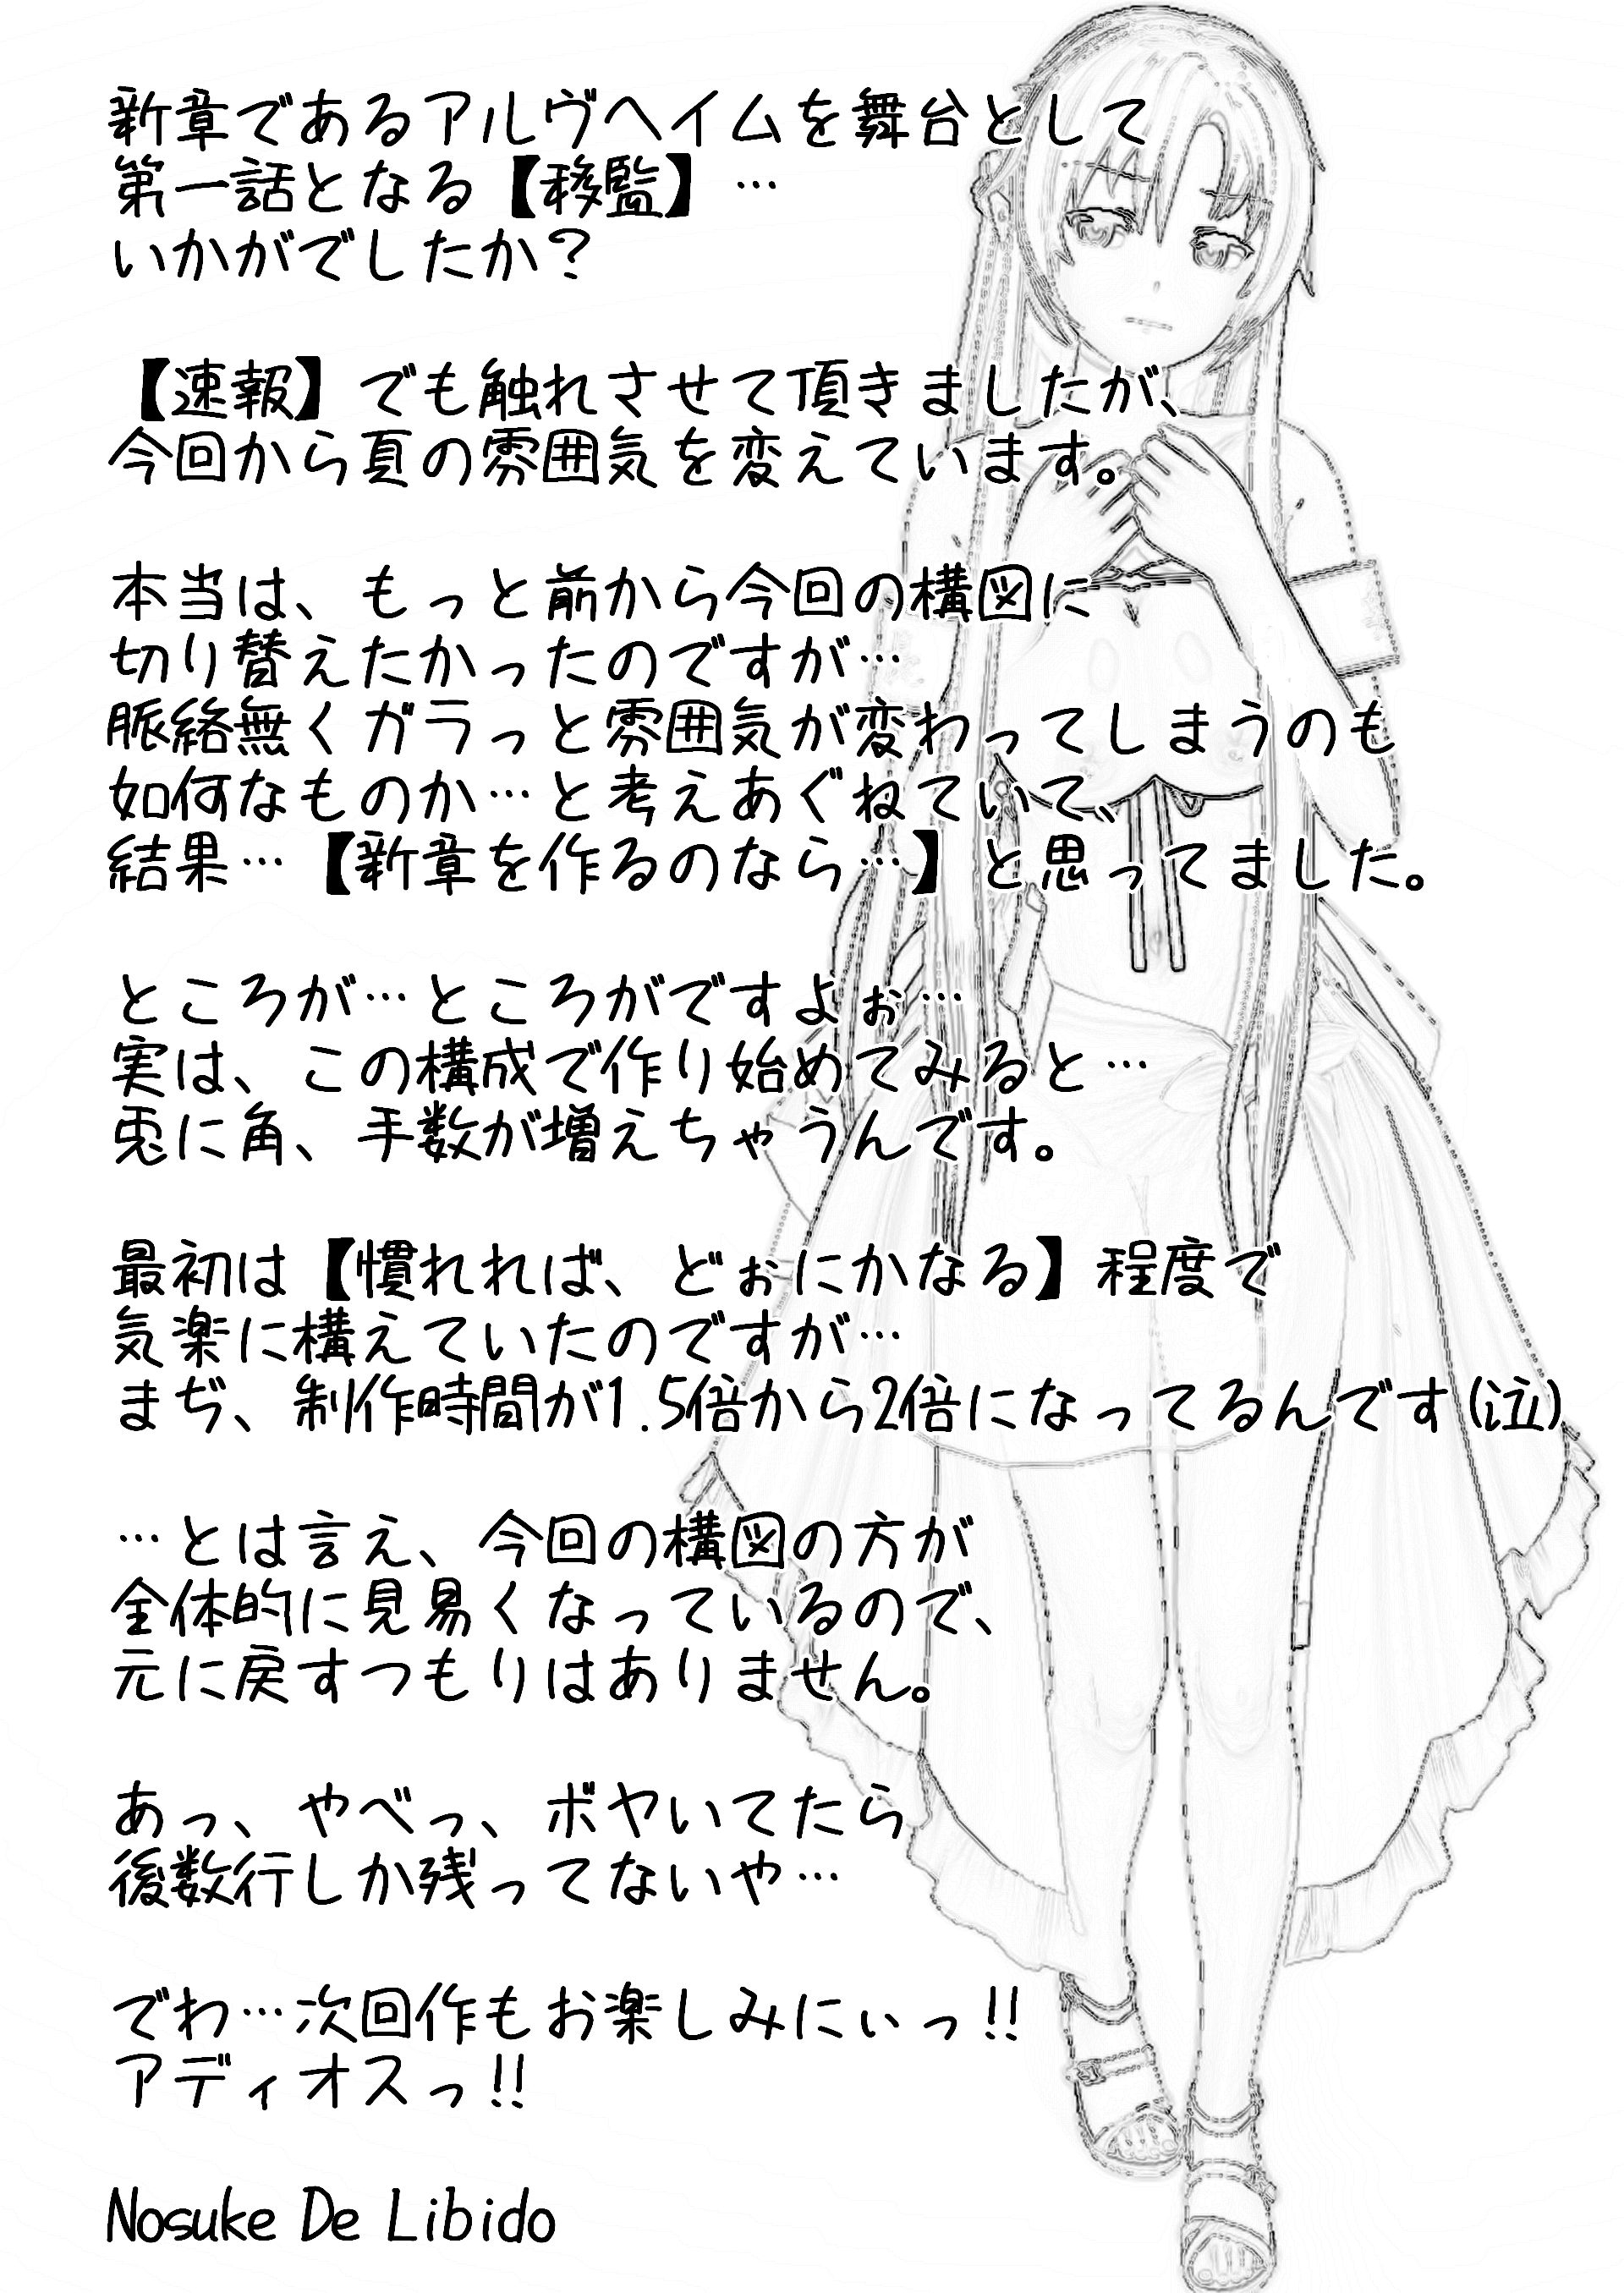 新章であるアルヴヘイムを舞台として
第一話となる【移監】…
いかがでしたか？
【速報】でも触れさせて頂きましたが、
今回から頁の雰囲気を変えています。
本当は、もっと前から今回の構図に
切り替えたかったのですが…
脈絡無くガラっと雰囲気が変わってしまうのも
如何なものか…と考えあぐねていて、
結果…【新章を作るのなら…】と思ってました。
ところが…ところがですよぉ…
実は、この構成で作り始めてみると…
兎に角、手数が増えちゃうんです。
最初は【慣れれば、どぉにかなる】程度で
気楽に構えていたのですが…
まぢ、制作時間が1.5倍から2倍になってるんです(泣)
…とは言え、今回の構図の方が
全体的に見易くなっているので、
元に戻すつもりはありません。
あっ、やべっ、ボヤいてたら
後数行しか残ってないや…
でわ…次回作もお楽しみにぃっ!!
アディオスっ!!
Nosuke De Libido